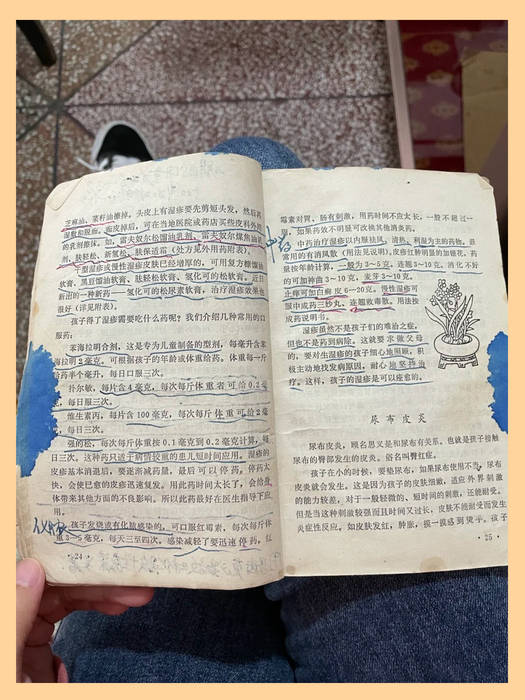 芝麻油、菜籽油擦掉。头皮上有湿疹要先剪短头发，然后再
湿敷和脱痂。痂皮掉后，可在当地医院或药店买些皮科外用
的乳剂擦抹。如，雷夫奴尔松馏油乳剂、雷夫奴尔煤焦油乳
剂、肤轻松、新氢松、肤保适霜（处方见外用药附表）。
干型湿疹或慢性湿疹皮肤已经增厚的，可用复方糠馏油
软膏、黑豆馏油软膏、肤轻松软膏、氢化可的松软膏。近日
新出的一种新药——氢化可的松尿素软膏，治疗湿疹效果也
很好（详见附表）。
孩子得了湿疹需要吃什么药呢？我们介绍几种常用的口
服药：
苯海拉明合剂，这是专为儿童制备的剂型，每毫升含苯
海拉明2毫克。可根据孩子的年龄或体重给药。体重每一斤
给药半个毫升，每日口服三次。
扑尔敏，每片含4毫克，每次每斤体重者可给0.2毫
克，每日服三次。
维生素丙，每片含100毫克，每次每斤体重可给2毫
克，每日三次。
强的松，每次每斤体重按0.1毫克到0.2毫克计算，每
日三次。这种药只适于病情较重的患儿短时间应用。湿疹的
皮疹基本消退后，要逐渐减药量，最后可以停药，停药太
快，会使已愈的皮疹迅速复发。用此药时间太长了，会给身
体带来其他方面的不良影响。所以此药最好在医生指导下应
用。
孩子发烧或有化脓感染的，可口服红霉素，每次每斤体
重3—5毫克，每天三至四次，感染减轻了要迅速停药，红
·24·
霉素对胃、肠有刺激，用药时间不应太长，一般不超过一
周，如果药效不明显可改换其他消炎药。
中药
中药治疗湿疹以内服祛风，清热，利湿为主的药物。最
常用的有消风散（用法见说明），皮疹红肿明显的加银花，药
量按年龄计算，一般为3～5克，连翘3～10克。消化不好
的可加神曲3～10克，麦芽3～10克。
止痒可加白鲜皮6～20克。慢性湿疹可
服中成药三妙丸、连翘败毒散，用法按
成药说明书。
湿疹虽然不是孩子们的难治之症，
但也不是药到病除，这就要求做父母
的，要对生湿疹的孩子细心地照顾，积
极主动地找发病原因，耐心地坚持治
疗。这样，孩子的湿疹是可以痊愈的。
尿布皮炎
尿布皮炎，顾名思义是和尿布有关系。也就是孩子接触
尿布的臀部发生的皮炎。俗名叫臀红症。
孩子在小的时候，要垫尿布，如果尿布使用不当，尿布
皮炎就会发生。这是因为孩子的皮肤细嫩，适应外界刺激
的能力较差，对于一般轻微的、短时间的刺激，还能耐受。
但是当这种刺激较强而且时间又过长，皮肤不能耐受而发生
炎症性反应，如皮肤发红，肿胀，摸一摸感到烫手。孩子
25·